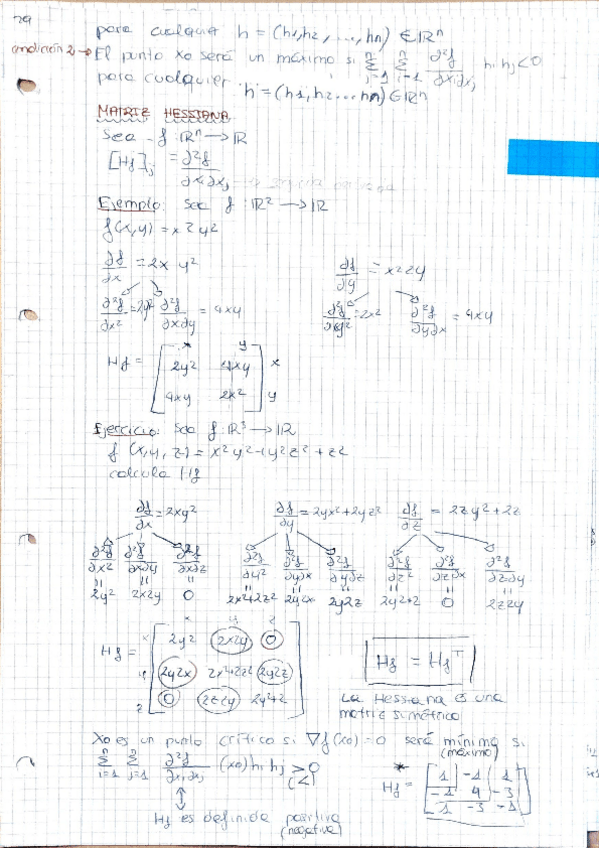 29
para cualquier h = (h1,h2, ..., hn) ∈ ℝⁿ
condición 2 → El punto xo será un máximo si Σⁿᵢ₌₁ Σⁿᵢ₌₁ ∂²f/∂xi∂xj hi hj < 0
para cualquier h = (h1,h2...hn) ∈ ℝⁿ
MATRIZ HESSIANA
Sea f: ℝⁿ → ℝ
[Hf]j = ∂²f/∂xi∂xj
Ejemplo: Sea f: ℝ² → ℝ
f(x,y) = x²y²
∂f/∂x = 2xy² ∂f/∂y = x²2y
∂²f/∂x² = 2y² ∂²f/∂x∂y = 4xy ∂²f/∂y² = 2x² ∂²f/∂y∂x = 4xy
x y
Hf = [ 2y² 4xy ] x
4xy 2x² y
Ejercicio: Sea f: ℝ³ → ℝ
f(x,y,z) = x²y² + y²z² + z²
calcula Hf
∂f/∂x = 2xy² ∂f/∂y = 2yx² + 2yz² ∂f/∂z = 2zy² + 2z
∂²f/∂x² ∂²f/∂x∂y ∂²f/∂x∂z ∂²f/∂y² ∂²f/∂y∂x ∂²f/∂y∂z ∂²f/∂z² ∂²f/∂z∂x ∂²f/∂z∂y
= = = = = = = = =
2y² 2x2y 0 2x²+2z² 2y2x 2y2z 2y²+2 0 2z2y
x y z
Hf = [ x 2y² 2x2y 0 ]
y 2y2x 2x²+2z² 2y2z
z 0 2z2y 2y²+2
Hf = Hfᵀ
La Hessiana es una
matriz simétrica
Xo es un punto crítico si ∇f(xo) = 0 será mínimo si
(máximo)
Σⁿᵢ₌₁ Σⁿⱼ₌₁ ∂²f/∂xi∂xj (xo) hi hj > 0
(<)
↕
Hf es definida positiva
(negativa)
*
Hf = [ 1 -1 1 ]
-1 4 -3
1 -3 -1